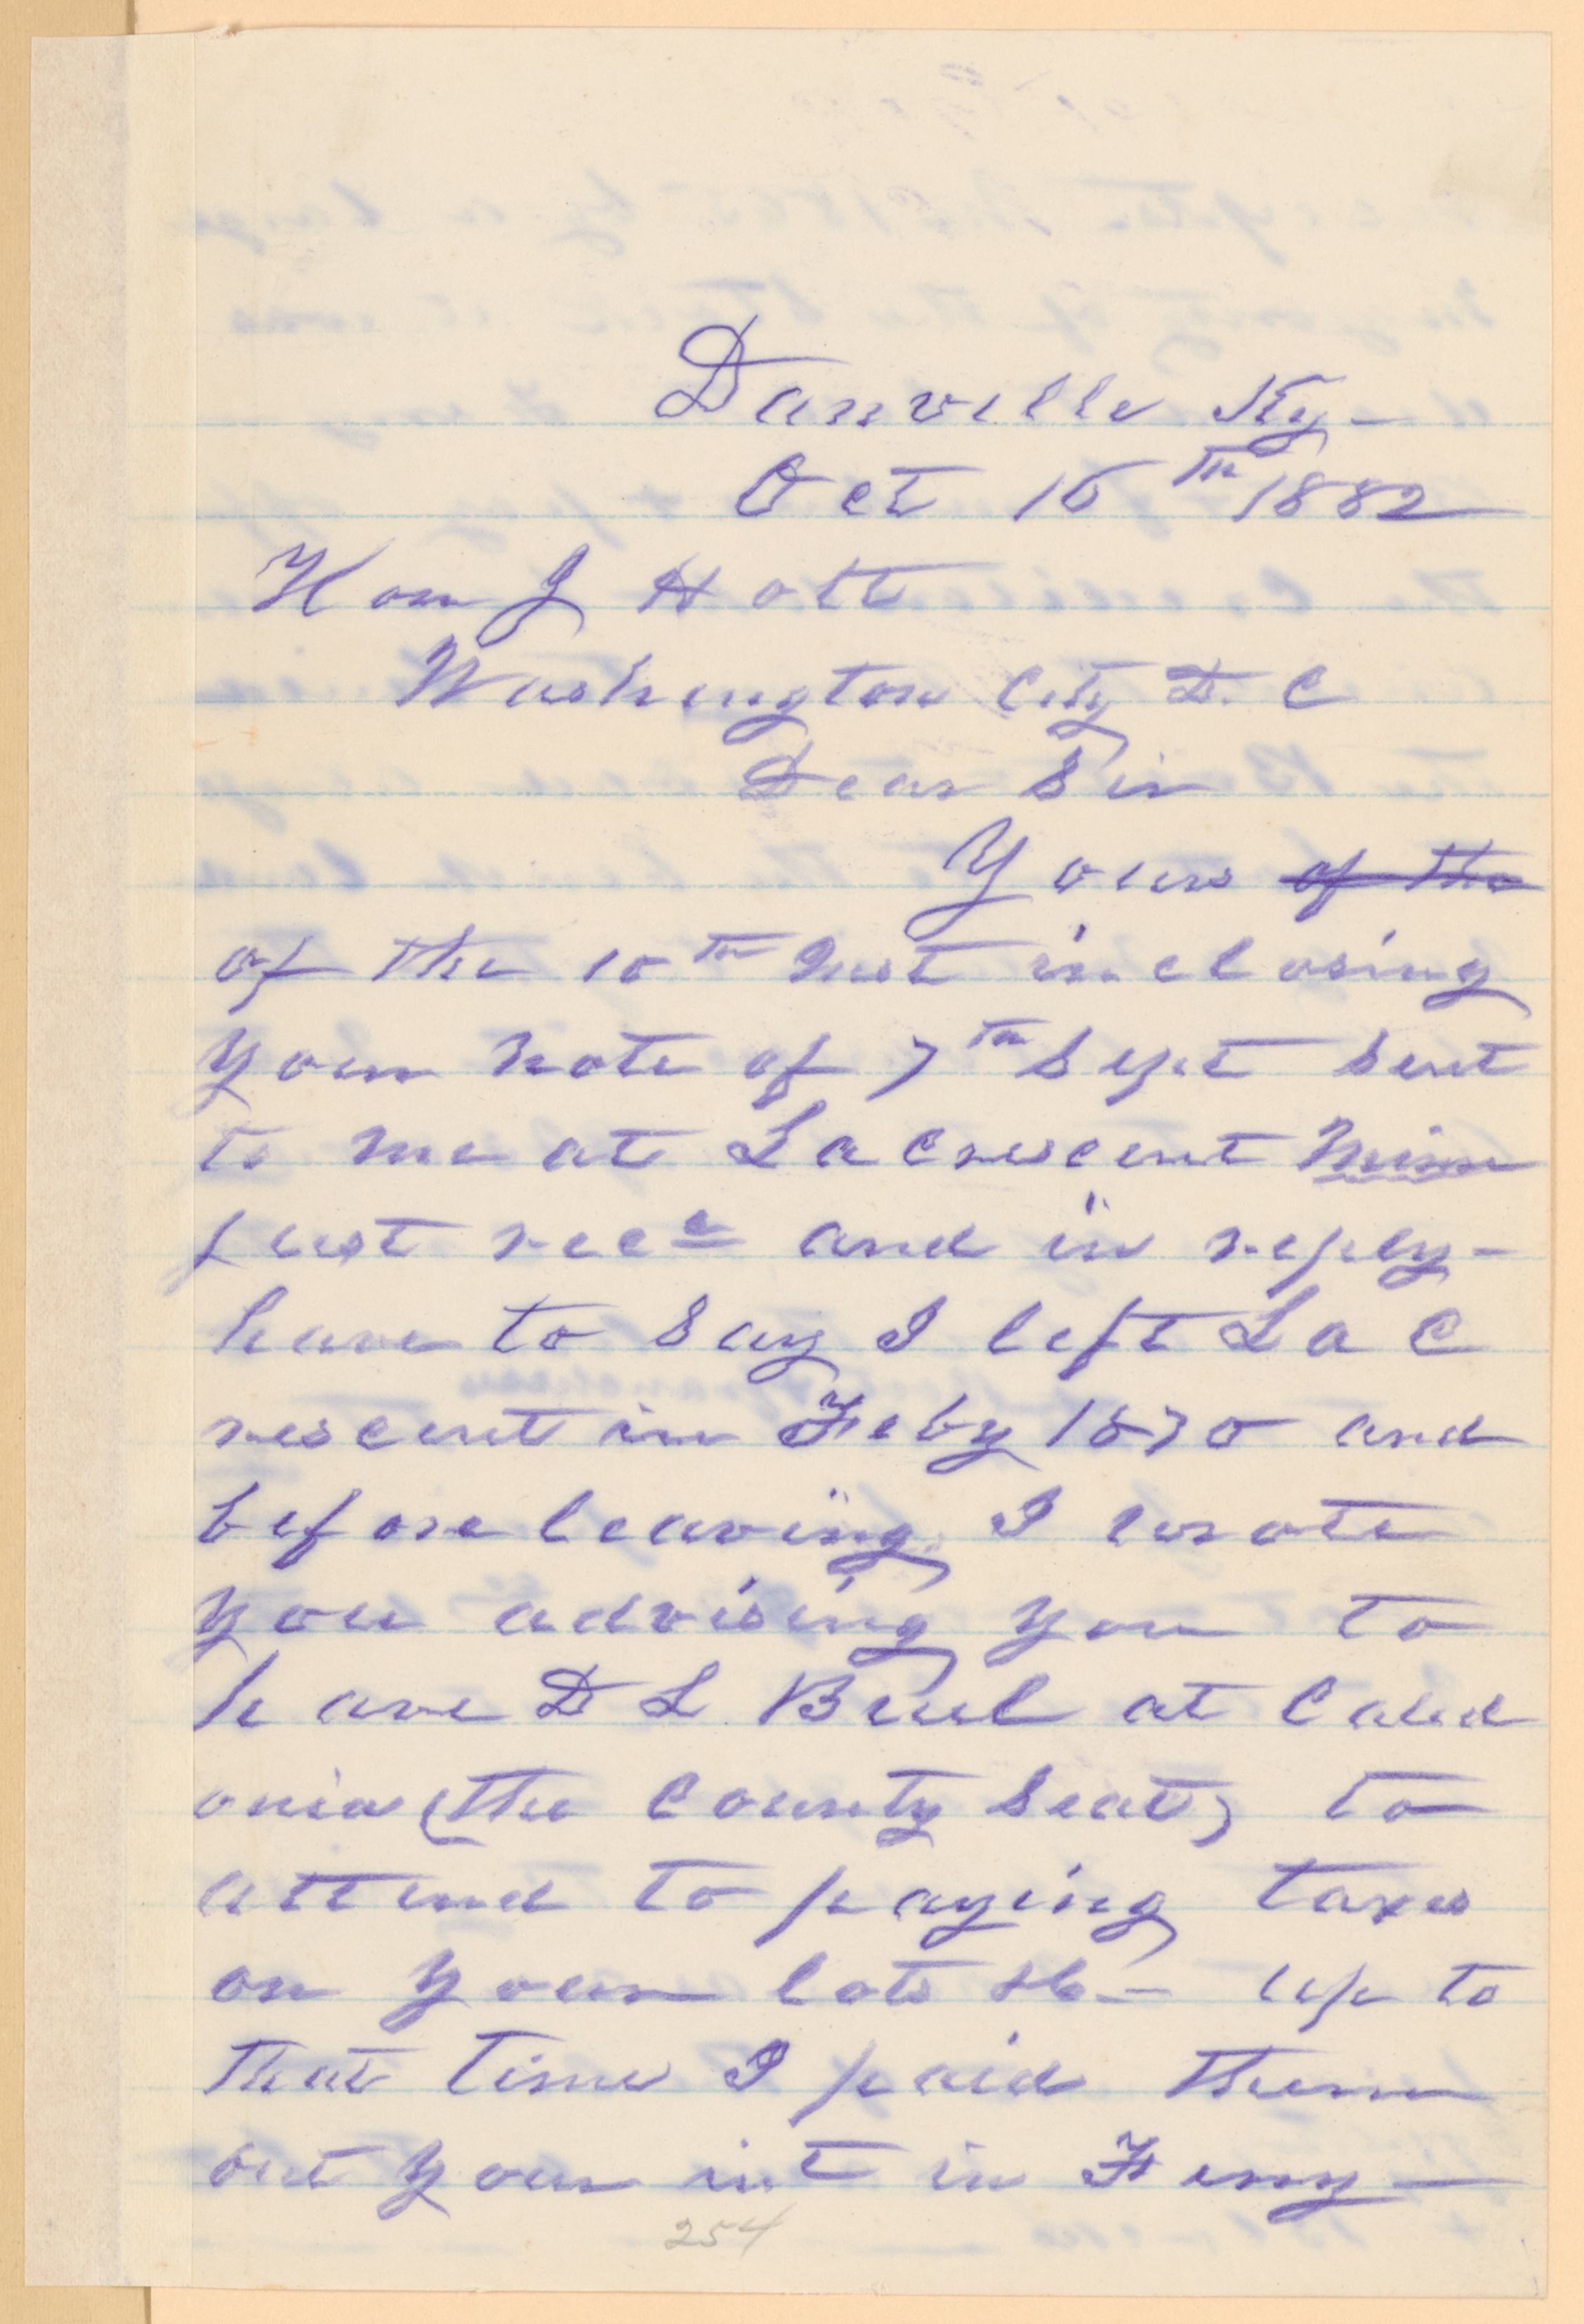 Danville Ky-
Oct 16th 1882
Hon J Holt
Washington City D. C
Dear Sir
Yours of the
of the 10th Inst inclosing
your note of 7th Sept sent
to me at La Crescent Minn
just recd and in reply-
have to say I left La C
rescent in Feby 1870 and
before leaving I wrote
you advising you to
have D L Buel at Caled
onia (the County Seat) to
attend to paying taxes
on your lots &c- up to
that time I paid them
out your int in Ferry-
254